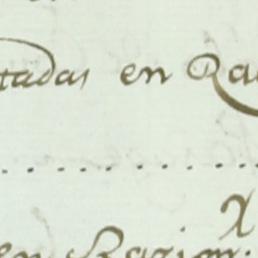 tadas en Ra
en Razion.